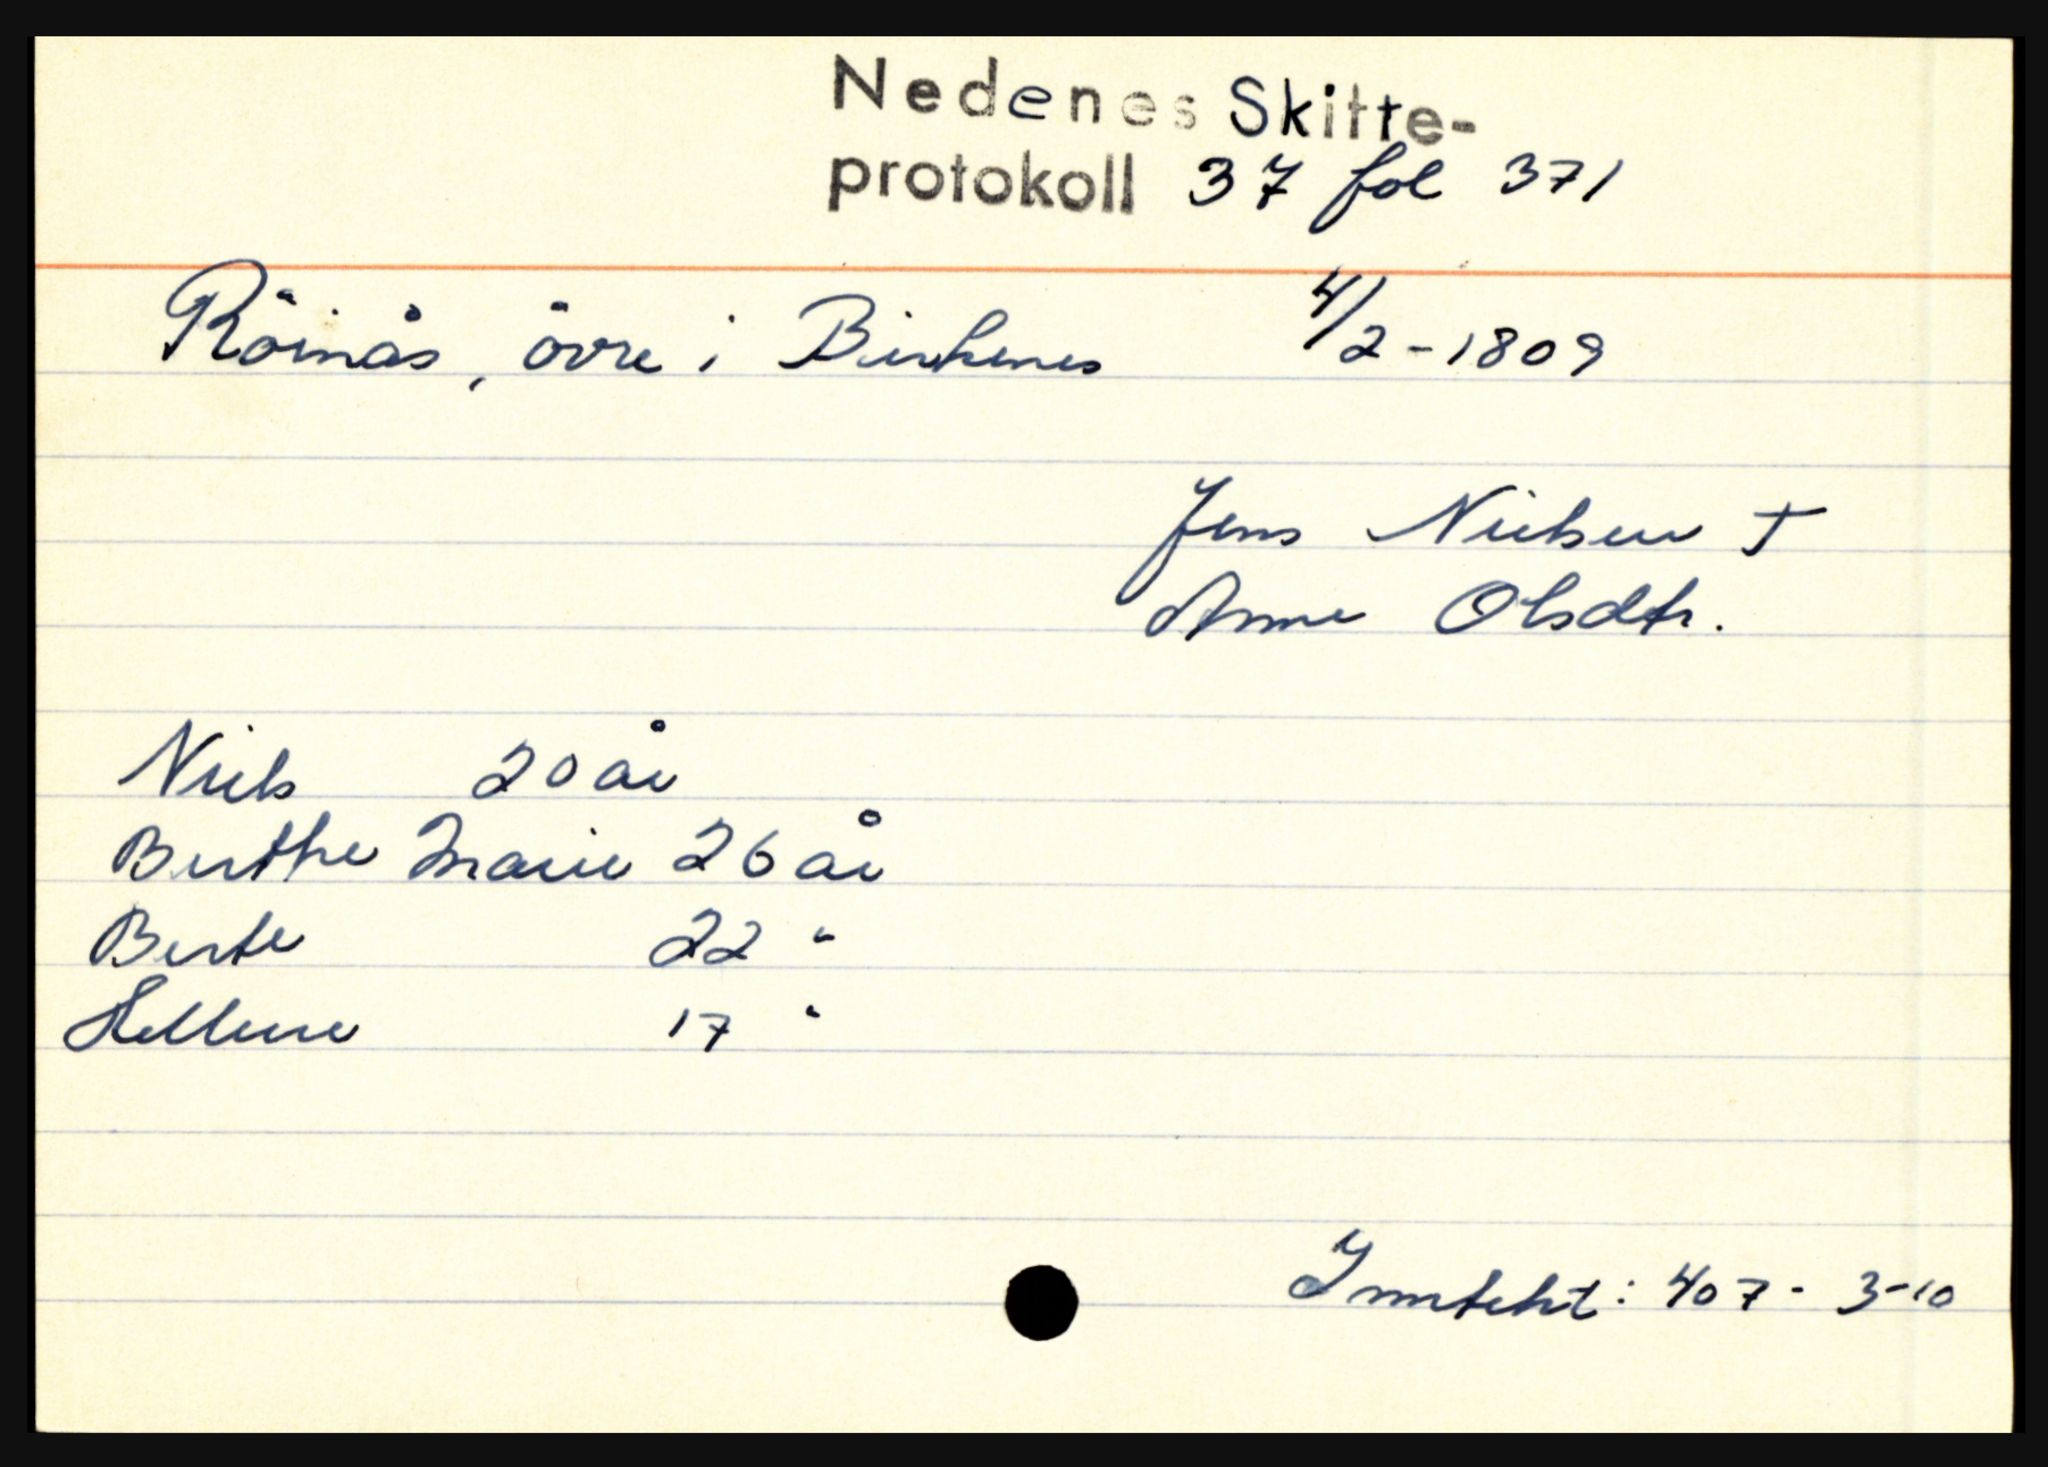 Nedenes Skitte-
protokoll 37 fol 371
Röinås, övre i Birkenes 4/2-1809
Jens Nielsen †
Anne Olsdtr.
Niels 20 år
Berthe Marie 26 år
Berte 22 "
Hellene 17 "
Inntekt: 407 - 3-10